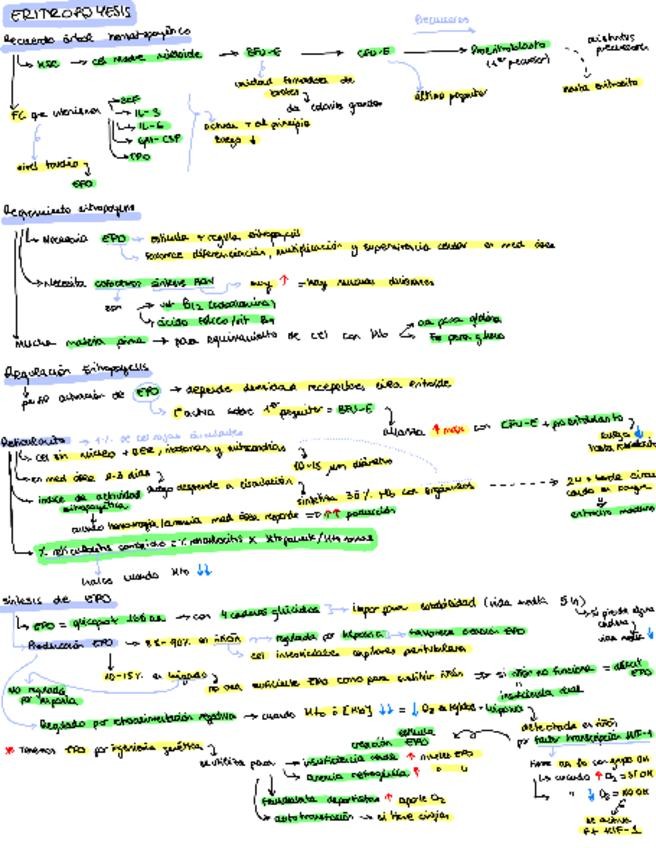 ERITROPOYESIS
Recuerdo árbol hematopoyético
Precursores
HSC → cel madre mieloide → BFU-E → CFU-E → Proeritroblasto
(1er precursor)
distintos
precursores
unidad formadora de
brotes
de colonias grandes
último progenitor
hasta eritrocito
FC que intervienen
SCF
IL-3
IL-6
GM-CSF
TPO
actúan + al principio
luego ↓
nivel tardío
EPO
Requerimiento eritropoyesis
Necesaria EPO → estimula + regula eritropoyesis
favorece diferenciación, multiplicación y supervivencia celular en med ósea
Necesita cofactores síntesis ADN → muy ↑ = hay muchas divisiones
son
vit B12 (cobalamina)
ácido fólico/vit B9
Mucha materia prima → para equipamiento de cel con Hb
aa para globina
Fe para grupo
Regulación Eritropoyesis
actuación de EPO → depende densidad receptores línea eritroide
1º actúa sobre 1er progenitor = BFU-E
alcanza ↑ máx con CFU-E + proeritroblasto
luego ↓
hasta reticulocito
Reticulocito → 1% de cel rojas circulantes
cel sin núcleo + RER, ribosomas y mitocondrias
10-15 µm diámetro
en med ósea 2-3 días
luego desprende a circulación
sintetiza 30% Hb con orgánulos
índice de actividad
eritropoyética
eritrocito maduro
cuando hemorragia/anemia med ósea responde =⊃ ↑↑ producción
% reticulocitos corregido = % reticulocitos x Hto paciente/Hto normal
cuando Hto ↓↓
síntesis de EPO
EPO = glicoprot 165 aa → con 4 cadenas glucídicas → impor para estabilidad (vida media 5h)
si pierde alguna
cadena
vida media ↓
Producción EPO → 85-90% en riñón → regulada por hipoxia → favorece creación EPO
cel intersticiales capilares peritubulares
10-15% en hígado
no regulado
por hipoxia
no crea suficiente EPO como para sustituir riñón ⇒ si riñón no funciona = déficit
EPO
insuficiencia renal
Regulado por retroalimentación negativa → cuando Hto o [Hb] ↓↓ = ↓ O2 a tejidos - hipoxia
detectada en riñón
por factor transcripción HIF-1
* Tenemos EPO por ingeniería genética
se utiliza para
estimula
creación EPO
insuficiencia renal ↑ niveles EPO
anemia nefrogénica ↑ " "
fraudulenta deportistas ↑ aporte O2
autotransfusión → si tiene cirugías
tiene con grupo OH
cuando ↑ O2 = SI OH
" ↓ O2 = NO OH
se activa
FT HIF-1